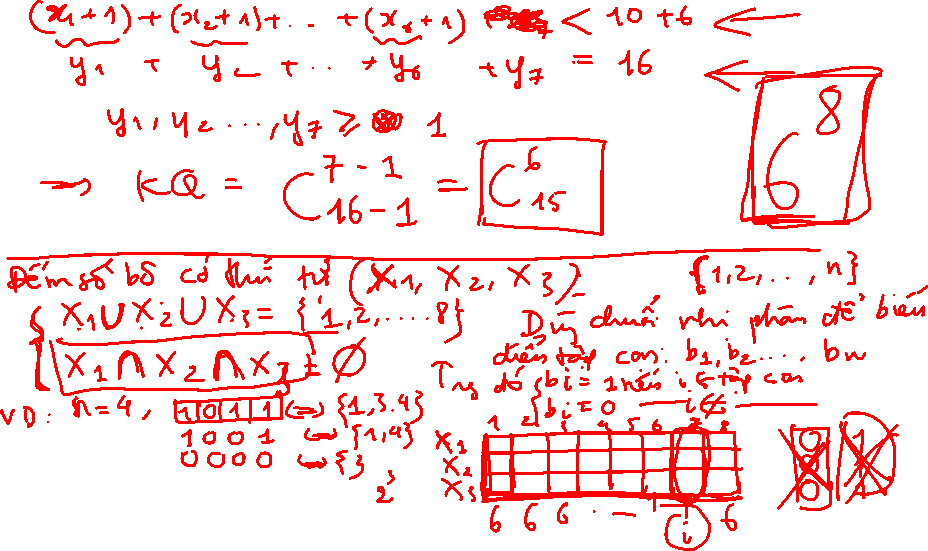 (x₁+1)+(x₂+1)+...+(x₆+1) < 10+6
y₁ + y₂ + ... + y₆ + y₇ = 16
y₁, y₂ ..., y₇ ≥ 1
6⁸
→ KQ = C₁₆₋₁⁷⁻¹ = C₁₅⁶
Đếm số bộ có thứ tự (X₁, X₂, X₃) {1,2,...,n}
X₁∪X₂∪X₃ = {1,2,....8}
X₁∩X₂∩X₃ = ∅
Dùng chuỗi nhị phân để biểu
diễn tập con: b₁, b₂..., bₙ
Trg đó bᵢ = 1 nếu i ∈ tập con
bᵢ = 0 — i ∉ —
VD: n=4, 1011 ⇔ {1,3.4}
1001 ⇔ {1,4}
0000 ⇔ {}
2
1 2 3 4 5 6 7 8
X₁
X₂
X₃
6 6 6 . — i 6
0 1
0 1
0 1